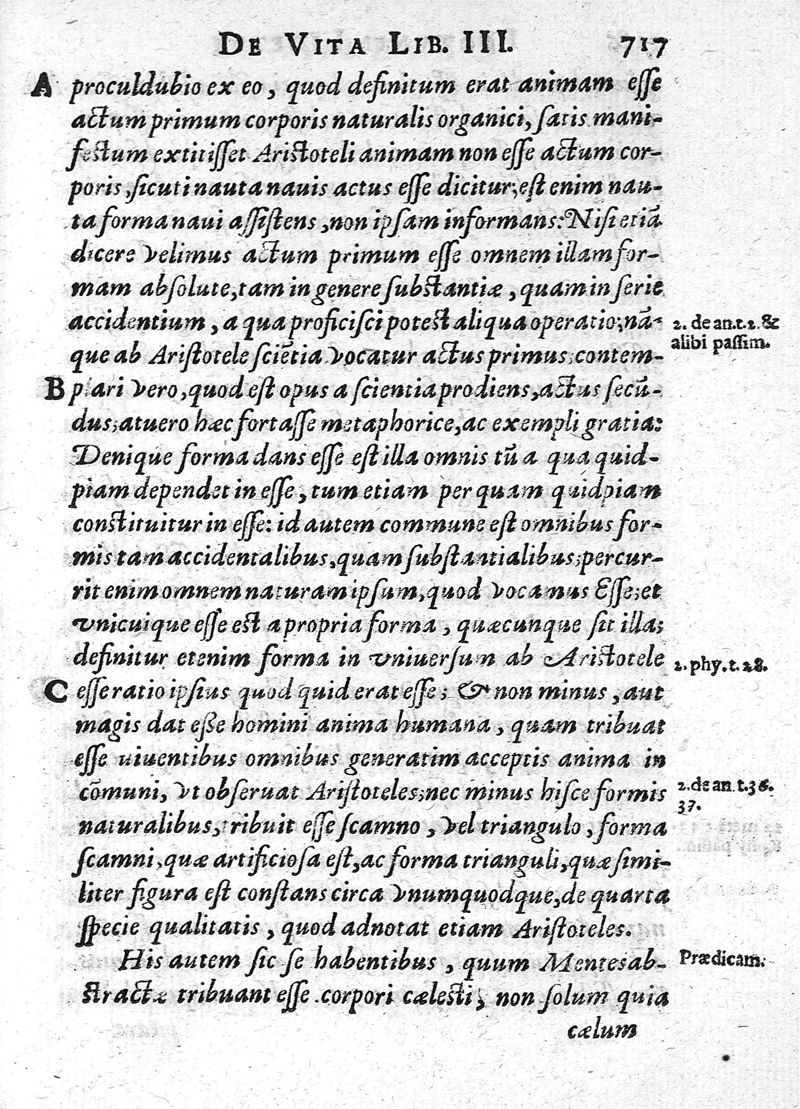 DE VITA LIB. III. 717
A proculdubio ex eo, quod definitum erat animam esse
actum primum corporis naturalis organici, satis mani-
festum extitisset Aristoteli animam non esse actum cor-
poris, sicuti nauta nauis actus esse dicitur; est enim nau-
ta forma naui assistens, non ipsam informans: Nisi etiã
dicere velimus actum primum esse omnem illam for-
mam absolute, tam in genere substantiæ, quam in serie
accidentium, a qua proficisci potest aliqua operatio; nã- 2. de an. t. 2. &
que ab Aristotele sciẽtia vocatur actus primus; contem- alibi passim.
B plari vero, quod est opus a scientia prodiens, actus secũ-
dus; at uero hæc fortasse metaphorice, ac exempli gratia:
Denique forma dans esse est illa omnis tũ a qua quid-
piam dependet in esse, tum etiam per quam quidpiam
constituitur in esse: id autem commune est omnibus for-
mis tam accidentalibus, quam substantialibus; percur-
rit enim omnem naturam ipsum, quod vocamus Esse; et
vnicuique esse est a propria forma, quæcunque sit illa;
definitur etenim forma in vniuersum ab Aristotele 2. phy. t. 28.
C esse ratio ipsius quod quid erat esse; & non minus, aut
magis dat eße homini anima humana, quam tribuat
esse uiuentibus omnibus generatim acceptis anima in
cõmuni, vt obseruat Aristoteles; nec minus hisce formis 2. de an. t. 36.
naturalibus, tribuit esse scamno, vel triangulo, forma 37.
scamni, quæ artificiosa est, ac forma trianguli, quæ simi-
liter figura est constans circa vnumquodque, de quarta
specie qualitatis, quod adnotat etiam Aristoteles.
His autem sic se habentibus, quum Mentes ab- Prædicam.
stractæ tribuant esse corpori cælesti; non solum quia
cælum